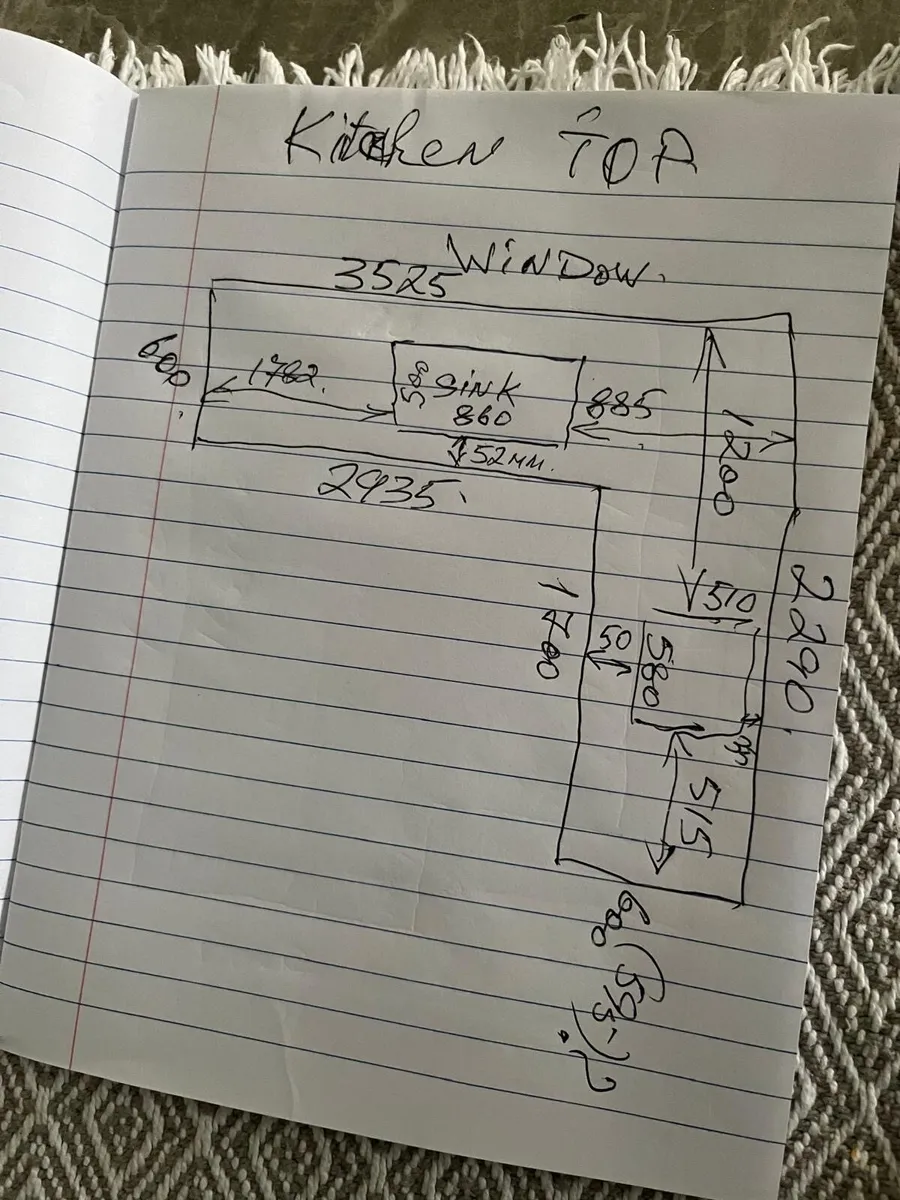 Kitchen TOP
WINDOW.
3525
600
1782.
500
SINK
860
885
52мм.
2935.
1200
2290.
1700
50
580
510
515
600 (595-)?